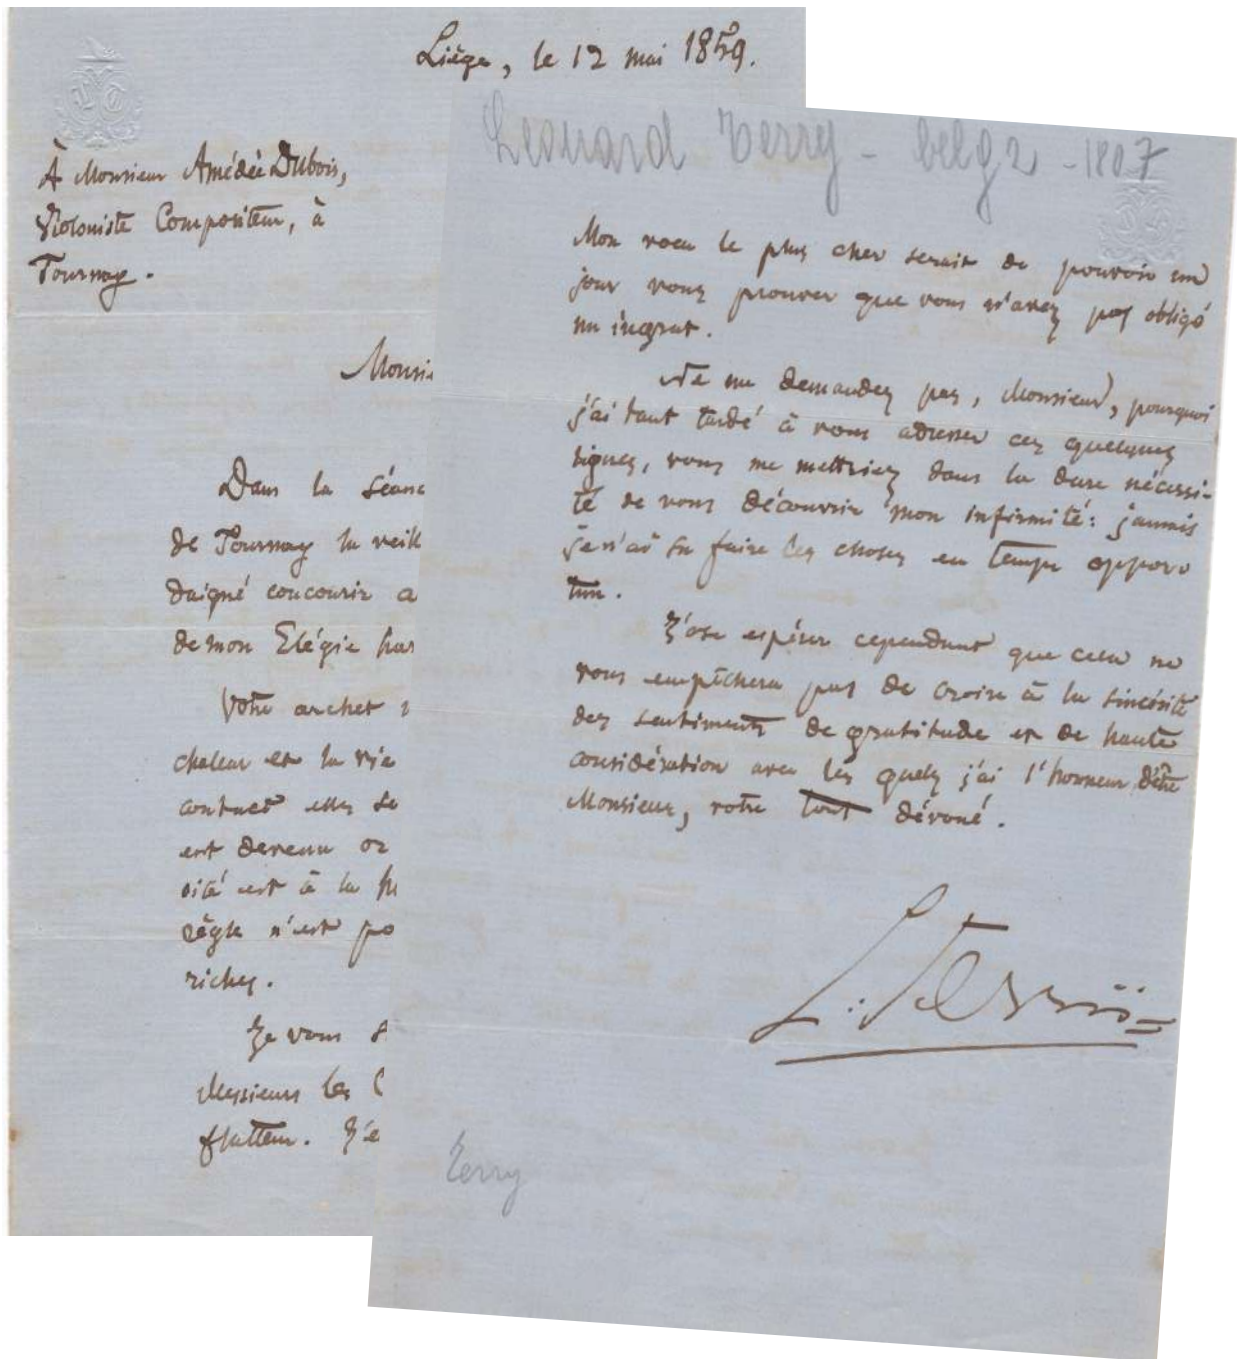 Liège, le 12 mai 1859.
À Monsieur Amédée Dubois,
Violoniste Compositeur, à
Tournay.
Monsi
Dans la séanc
de Tournay la veill
daigné concourir a
de mon Elégie
Votre archet
chaleur et la vie
contact elles se
est devenu or
sité est à la
règle n'est po
riches.
Je vous
Messieurs les C
flatteur. J'e
Leonard Terry - belge - 1807
Mon vœu le plus cher serait de pouvoir un
jour vous prouver que vous n'avez pas obligé
un ingrat.
Ne me demandez pas, Monsieur, pourquoi
j'ai tant tardé à vous adresser ces quelques
lignes, vous me mettriez dans la dure nécessi-
té de vous découvrir mon infirmité: jamais
je n'ai su faire les choses en temps oppor
tun.
J'ose espérer cependant que cela ne
vous empêchera pas de croire à la sincérité
des sentiments de gratitude et de haute
considération avec les quels j'ai l'honneur d'être
Monsieur, votre tout dévoué.
L. Terry
Terry